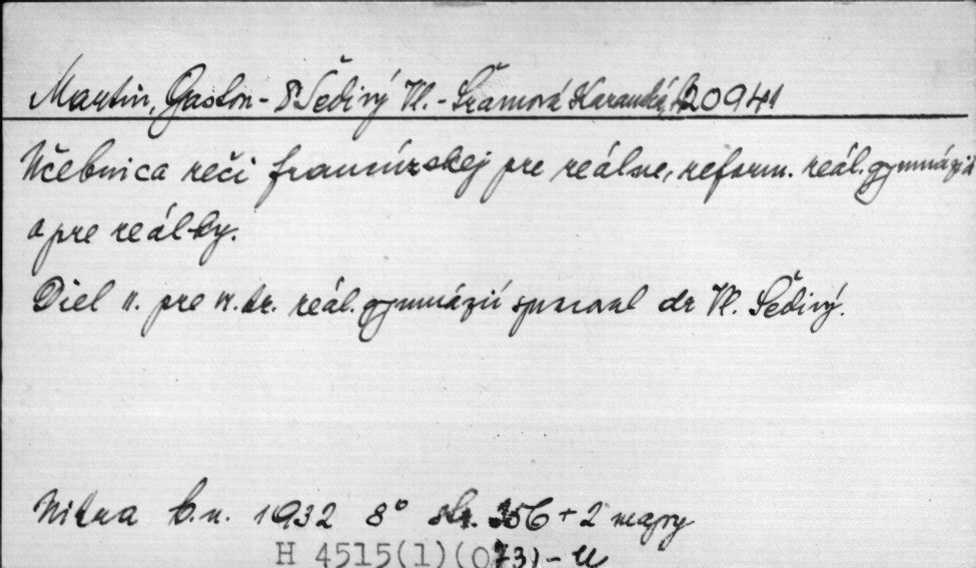 Martin, Gaston - Šedivý Vl. - Šramová 20941
Učebnica reči francúzskej pre reálne, reform. reál. gymnázia
a pre reálky.
Diel II. pre IV. tr. reál. gymnázií spracoval dr Vl. Šedivý.
Nitra b.n. 1932 8° str. 356 + 2 mapy
H 4515(1)(073)-U